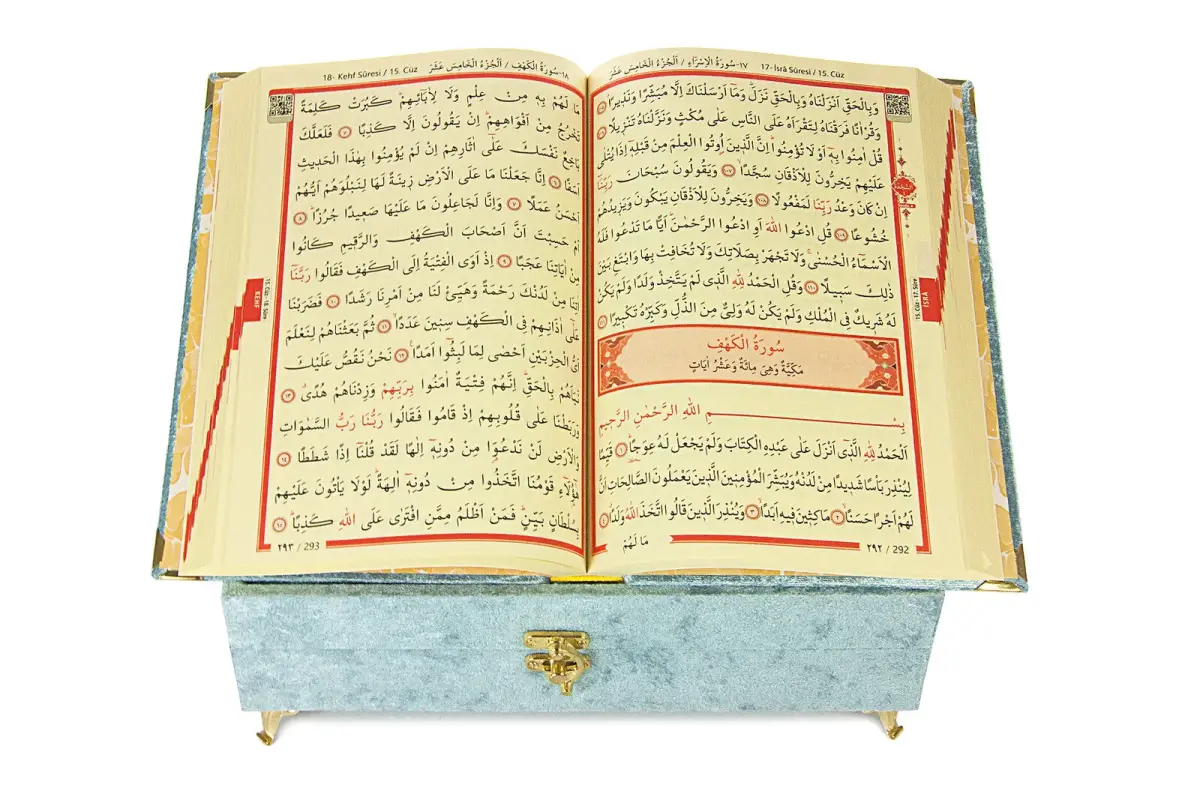 ١٧-سُورَةُ الْاِسْرَاءِ / اَلْجُزْءُ الْخَامِسُ عَشَرَ 17-İsrâ Sûresi / 15. Cüz
وَبِالْحَقِّ اَنْزَلْنَاهُ وَبِالْحَقِّ نَزَلَۜ وَمَٓا اَرْسَلْنَاكَ اِلَّا مُبَشِّرًا وَنَذِيرًاۢ ﴿١٠٥﴾
وَقُرْاٰنًا فَرَقْنَاهُ لِتَقْرَاَهُ عَلَى النَّاسِ عَلٰى مُكْثٍ وَنَزَّلْنَاهُ تَنْزِيلًا ﴿١٠٦﴾
قُلْ اٰمِنُوا بِهٖٓ اَوْ لَا تُؤْمِنُواۜ اِنَّ الَّذِينَ اُوتُوا الْعِلْمَ مِنْ قَبْلِهٖٓ اِذَا يُتْلٰى
عَلَيْهِمْ يَخِرُّونَ لِلْاَذْقَانِ سُجَّدًاۙ ﴿١٠٧﴾ وَيَقُولُونَ سُبْحَانَ رَبِّنَٓا
اِنْ كَانَ وَعْدُ رَبِّنَا لَمَفْعُولًا ﴿١٠٨﴾ وَيَخِرُّونَ لِلْاَذْقَانِ يَبْكُونَ وَيَزِيدُهُمْ
خُشُوعًا ﴿١٠٩﴾ قُلِ ادْعُوا اللّٰهَ اَوِ ادْعُوا الرَّحْمٰنَۜ اَيًّا مَا تَدْعُوا فَلَهُ
الْاَسْمَٓاءُ الْحُسْنٰىۚ وَلَا تَجْهَرْ بِصَلَاتِكَ وَلَا تُخَافِتْ بِهَا وَابْتَغِ بَيْنَ
ذٰلِكَ سَبِيلًا ﴿١١٠﴾ وَقُلِ الْحَمْدُ لِلّٰهِ الَّذِي لَمْ يَتَّخِذْ وَلَدًا وَلَمْ يَكُنْ
لَهُ شَرِيكٌ فِي الْمُلْكِ وَلَمْ يَكُنْ لَهُ وَلِيٌّ مِنَ الذُّلِّ وَكَبِّرْهُ تَكْبِيرًا ﴿١١١﴾
سُورَةُ الْكَهْفِ
مَكِّيَّةٌ وَهِيَ مِائَةٌ وَعَشْرُ اٰيَاتٍ
بِسْمِ اللّٰهِ الرَّحْمٰنِ الرَّحِيمِ
اَلْحَمْدُ لِلّٰهِ الَّذِٓي اَنْزَلَ عَلٰى عَبْدِهِ الْكِتَابَ وَلَمْ يَجْعَلْ لَهُ عِوَجًاۜ ﴿١﴾ قَيِّمًا
لِيُنْذِرَ بَاْسًا شَدِيدًا مِنْ لَدُنْهُ وَيُبَشِّرَ الْمُؤْمِنِينَ الَّذِينَ يَعْمَلُونَ الصَّالِحَاتِ اَنَّ
لَهُمْ اَجْرًا حَسَنًاۙ ﴿٢﴾ مَاكِثِينَ فِيهِ اَبَدًاۙ ﴿٣﴾ وَيُنْذِرَ الَّذِينَ قَالُوا اتَّخَذَ اللّٰهُ وَلَدًاۗ ﴿٤﴾
مَا لَهُمْ
٢٩٢ / 292
15. Cüz - 17. Sûre
İSRÂ
١٨-سُورَةُ الْكَهْفِ / اَلْجُزْءُ الْخَامِسُ عَشَرَ 18- Kehf Sûresi / 15. Cüz
مَا لَهُمْ بِهٖ مِنْ عِلْمٍ وَلَا لِاٰبَٓائِهِمْۜ كَبُرَتْ كَلِمَةً
تَخْرُجُ مِنْ اَفْوَاهِهِمْۜ اِنْ يَقُولُونَ اِلَّا كَذِبًا ﴿٥﴾ فَلَعَلَّكَ
بَاخِعٌ نَفْسَكَ عَلٰٓى اٰثَارِهِمْ اِنْ لَمْ يُؤْمِنُوا بِهٰذَا الْحَدِيثِ
اَسَفًا ﴿٦﴾ اِنَّا جَعَلْنَا مَا عَلَى الْاَرْضِ زِينَةً لَهَا لِنَبْلُوَهُمْ اَيُّهُمْ
اَحْسَنُ عَمَلًا ﴿٧﴾ وَاِنَّا لَجَاعِلُونَ مَا عَلَيْهَا صَعِيدًا جُرُزًاۜ ﴿٨﴾
اَمْ حَسِبْتَ اَنَّ اَصْحَابَ الْكَهْفِ وَالرَّقِيمِ كَانُوا
مِنْ اٰيَاتِنَا عَجَبًا ﴿٩﴾ اِذْ اَوَى الْفِتْيَةُ اِلَى الْكَهْفِ فَقَالُوا رَبَّنَٓا
اٰتِنَا مِنْ لَدُنْكَ رَحْمَةً وَهَيِّئْ لَنَا مِنْ اَمْرِنَا رَشَدًا ﴿١٠﴾ فَضَرَبْنَا
عَلٰٓى اٰذَانِهِمْ فِي الْكَهْفِ سِنِينَ عَدَدًاۙ ﴿١١﴾ ثُمَّ بَعَثْنَاهُمْ لِنَعْلَمَ
اَيُّ الْحِزْبَيْنِ اَحْصٰى لِمَا لَبِثُٓوا اَمَدًا۟ ﴿١٢﴾ نَحْنُ نَقُصُّ عَلَيْكَ
نَبَاَهُمْ بِالْحَقِّۜ اِنَّهُمْ فِتْيَةٌ اٰمَنُوا بِرَبِّهِمْ وَزِدْنَاهُمْ هُدًىۗ ﴿١٣﴾
وَرَبَطْنَا عَلٰى قُلُوبِهِمْ اِذْ قَامُوا فَقَالُوا رَبُّنَا رَبُّ السَّمٰوَاتِ
وَالْاَرْضِ لَنْ نَدْعُوَا مِنْ دُونِهٖٓ اِلٰهًا لَقَدْ قُلْنَٓا اِذًا شَطَطًا ﴿١٤﴾
هٰٓؤُ۬لَٓاءِ قَوْمُنَا اتَّخَذُوا مِنْ دُونِهٖٓ اٰلِهَةًۜ لَوْلَا يَاْتُونَ عَلَيْهِمْ
بِسُلْطَانٍ بَيِّنٍۜ فَمَنْ اَظْلَمُ مِمَّنِ افْتَرٰى عَلَى اللّٰهِ كَذِبًاۜ ﴿١٥﴾
٢٩٣ / 293
15. Cüz - 18. Sûre
KEHF